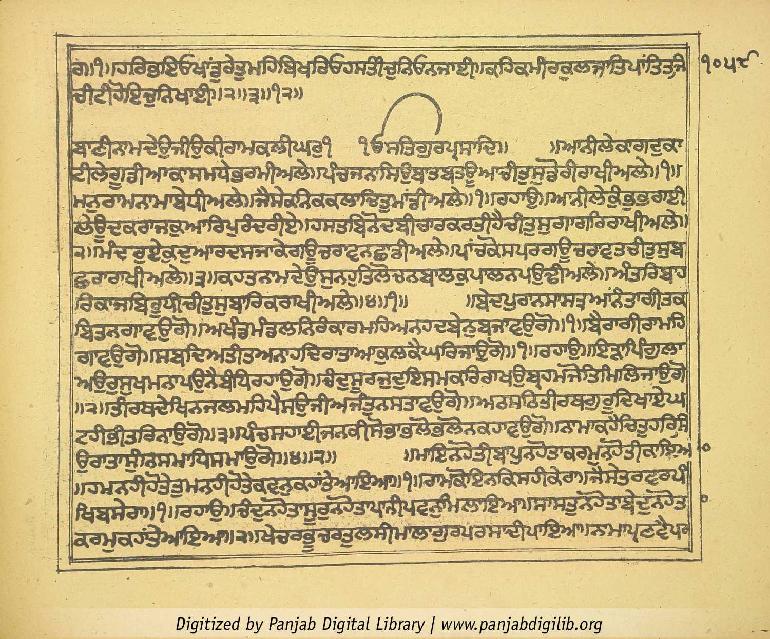 ਗ॥੧॥ਹਰਿਭਇਓਖਾਂਡੁਰੇਤੁਮਹਿਬਿਖਰਿਓਹਸਤੀਚੁਨਿਓਨਜਾਈ॥ਕਹਿਕਮੀਰਕੁਲਜਾਤਿਪਾਂਤਿਤਜਿ ੧੦੫੯
ਚੀਟੀਹੋਇਚੁਨਿਖਾਈ॥੨॥੩॥੧੨॥
ਬਾਣੀਨਾਮਦੇਉਜੀਉਕੀਰਾਮਕਲੀਘਰੁ੧ ੴਸਤਿਗੁਰਪ੍ਰਸਾਦਿ॥ ॥ਆਨੀਲੇਕਾਗਦੁਕਾ
ਟੀਲੇਗੂਡੀਆਕਾਸਮਧੇਭਰਮੀਅਲੇ॥ਪੰਚਜਨਾਸਿਉਬਤਬਤਊਆਚੀਤੁਸੁਡੋਰੀਰਾਖੀਅਲੇ॥੧॥
ਮਨੁਰਾਮਨਾਮਾਬੇਧੀਅਲੇ॥ਜੈਸੇਕਨਿਕਕਲਾਚਿਤੁਮਾਂਡੀਅਲੇ॥੧॥ਰਹਾਉ॥ਆਨੀਲੇਕੁੰਭੁਭਰਾਈ
ਲੇਊਦਕਰਾਜਕੁਆਰਿਪੁਰੰਦਰੀਏ॥ਹਸਤਬਿਨੋਦਬੀਚਾਰਕਰਤੀਹੈਚੀਤੁਸੁਗਾਗਰਿਰਾਖੀਅਲੇ॥
੨॥ਮੰਦਰੁਏਕੁਦੁਆਰਦਸਜਾਕੇਗਊਚਰਾਵਨਛਾਡੀਅਲੇ॥ਪਾਂਚਕੋਸਪਰਗਊਚਰਾਵਤਚੀਤੁਸੁਬ
ਛਰਾਰਾਖੀਅਲੇ॥੩॥ਕਹਤਨਾਮਦੇਉਸੁਨਹੁਤਿਲੋਚਨਬਾਲਕੁਪਾਲਨਪਉਢੀਅਲੇ॥ਅੰਤਰਿਬਾਹ
ਰਿਕਾਜਬਿਰੂਧੀਚੀਤੁਸੁਬਾਰਿਕਰਾਖੀਅਲੇ॥੪॥੧॥ ॥ਬੇਦਪੁਰਾਨਸਾਸਤ੍ਰਆਨੰਤਾਗੀਤਕ
ਬਿਤਨਗਾਵਉਗੋ॥ਅਖੰਡਮੰਡਲਨਿਰੰਕਾਰਮਹਿਅਨਹਦਬੇਨੁਬਜਾਵਉਗੋ॥੧॥ਬੈਰਾਗੀਰਾਮਹਿ
ਗਾਵਉਗੋ॥ਸਬਦਿਅਤੀਤਅਨਾਹਦਿਰਾਤਾਆਕੁਲਕੈਘਰਿਜਾਉਗੋ॥੧॥ਰਹਾਉ॥ਇੜਾਪਿੰਗੁਲਾ
ਅਉਰੁਸੁਖਮਨਾਪਉਨੈਬੰਧਿਰਹਾਉਗੋ॥ਚੰਦੁਸੂਰਜੁਦੁਇਸਮਕਰਿਰਾਖਉਬ੍ਰਹਮਜੋਤਿਮਿਲਿਜਾਉਗੋ
॥੨॥ਤੀਰਥਦੇਖਿਨਜਲਮਹਿਪੈਸਉਜੀਅਜੰਤਨਸਤਾਵਉਗੋ॥ਅਠਸਠਿਤੀਰਥਗੁਰੂਦਿਖਾਏਘ
ਟਹੀਭੀਤਰਿਨਾਉਗੋ॥੩॥ਪੰਚਸਹਾਈਜਨਕੀਸੋਭਾਭਲੋਭਲੋਨਕਹਾਵਉਗੋ॥ਨਾਮਾਕਹੈਚਿਤੁਹਰਿਸਿ
ਉਰਾਤਾਸੁੰਨਸਮਾਧਿਸਮਾਉਗੋ॥੪॥੨॥ ॥ਮਾਇਨਹੋਤੀਬਾਪੁਨਹੋਤਾਕਰਮੁਨਹੋਤੀਕਾਇਆ
॥ਹਮਨਹੀਹੋਤੇਤੁਮਨਹੀਹੋਤੇਕਵਨੁਕਹਾਂਤੇਆਇਆ॥੧॥ਰਾਮਕੋਇਨਕਿਸਹੀਕੇਰਾ॥ਜੈਸੇਤਰਵਰਪੰ
ਖਿਬਸੇਰਾ॥੧॥ਰਹਾਉ॥ਚੰਦੁਨਹੋਤਾਸੂਰੁਨਹੋਤਾਪਾਨੀਪਵਨੁਮਿਲਾਇਆ॥ਸਾਸਤੁਨਹੋਤਾਬੇਦੁਨਹੋਤਾ
ਕਰਮੁਕਹਾਂਤੇਆਇਆ॥੨॥ਖੇਚਰਭੂਚਰਤੁਲਸੀਮਾਲਾਗੁਰਪਰਸਾਦੀਪਾਇਆ॥ਨਾਮਾਪ੍ਰਣਵੈਪਰ
Digitized by Panjab Digital Library | www.panjabdigilib.org